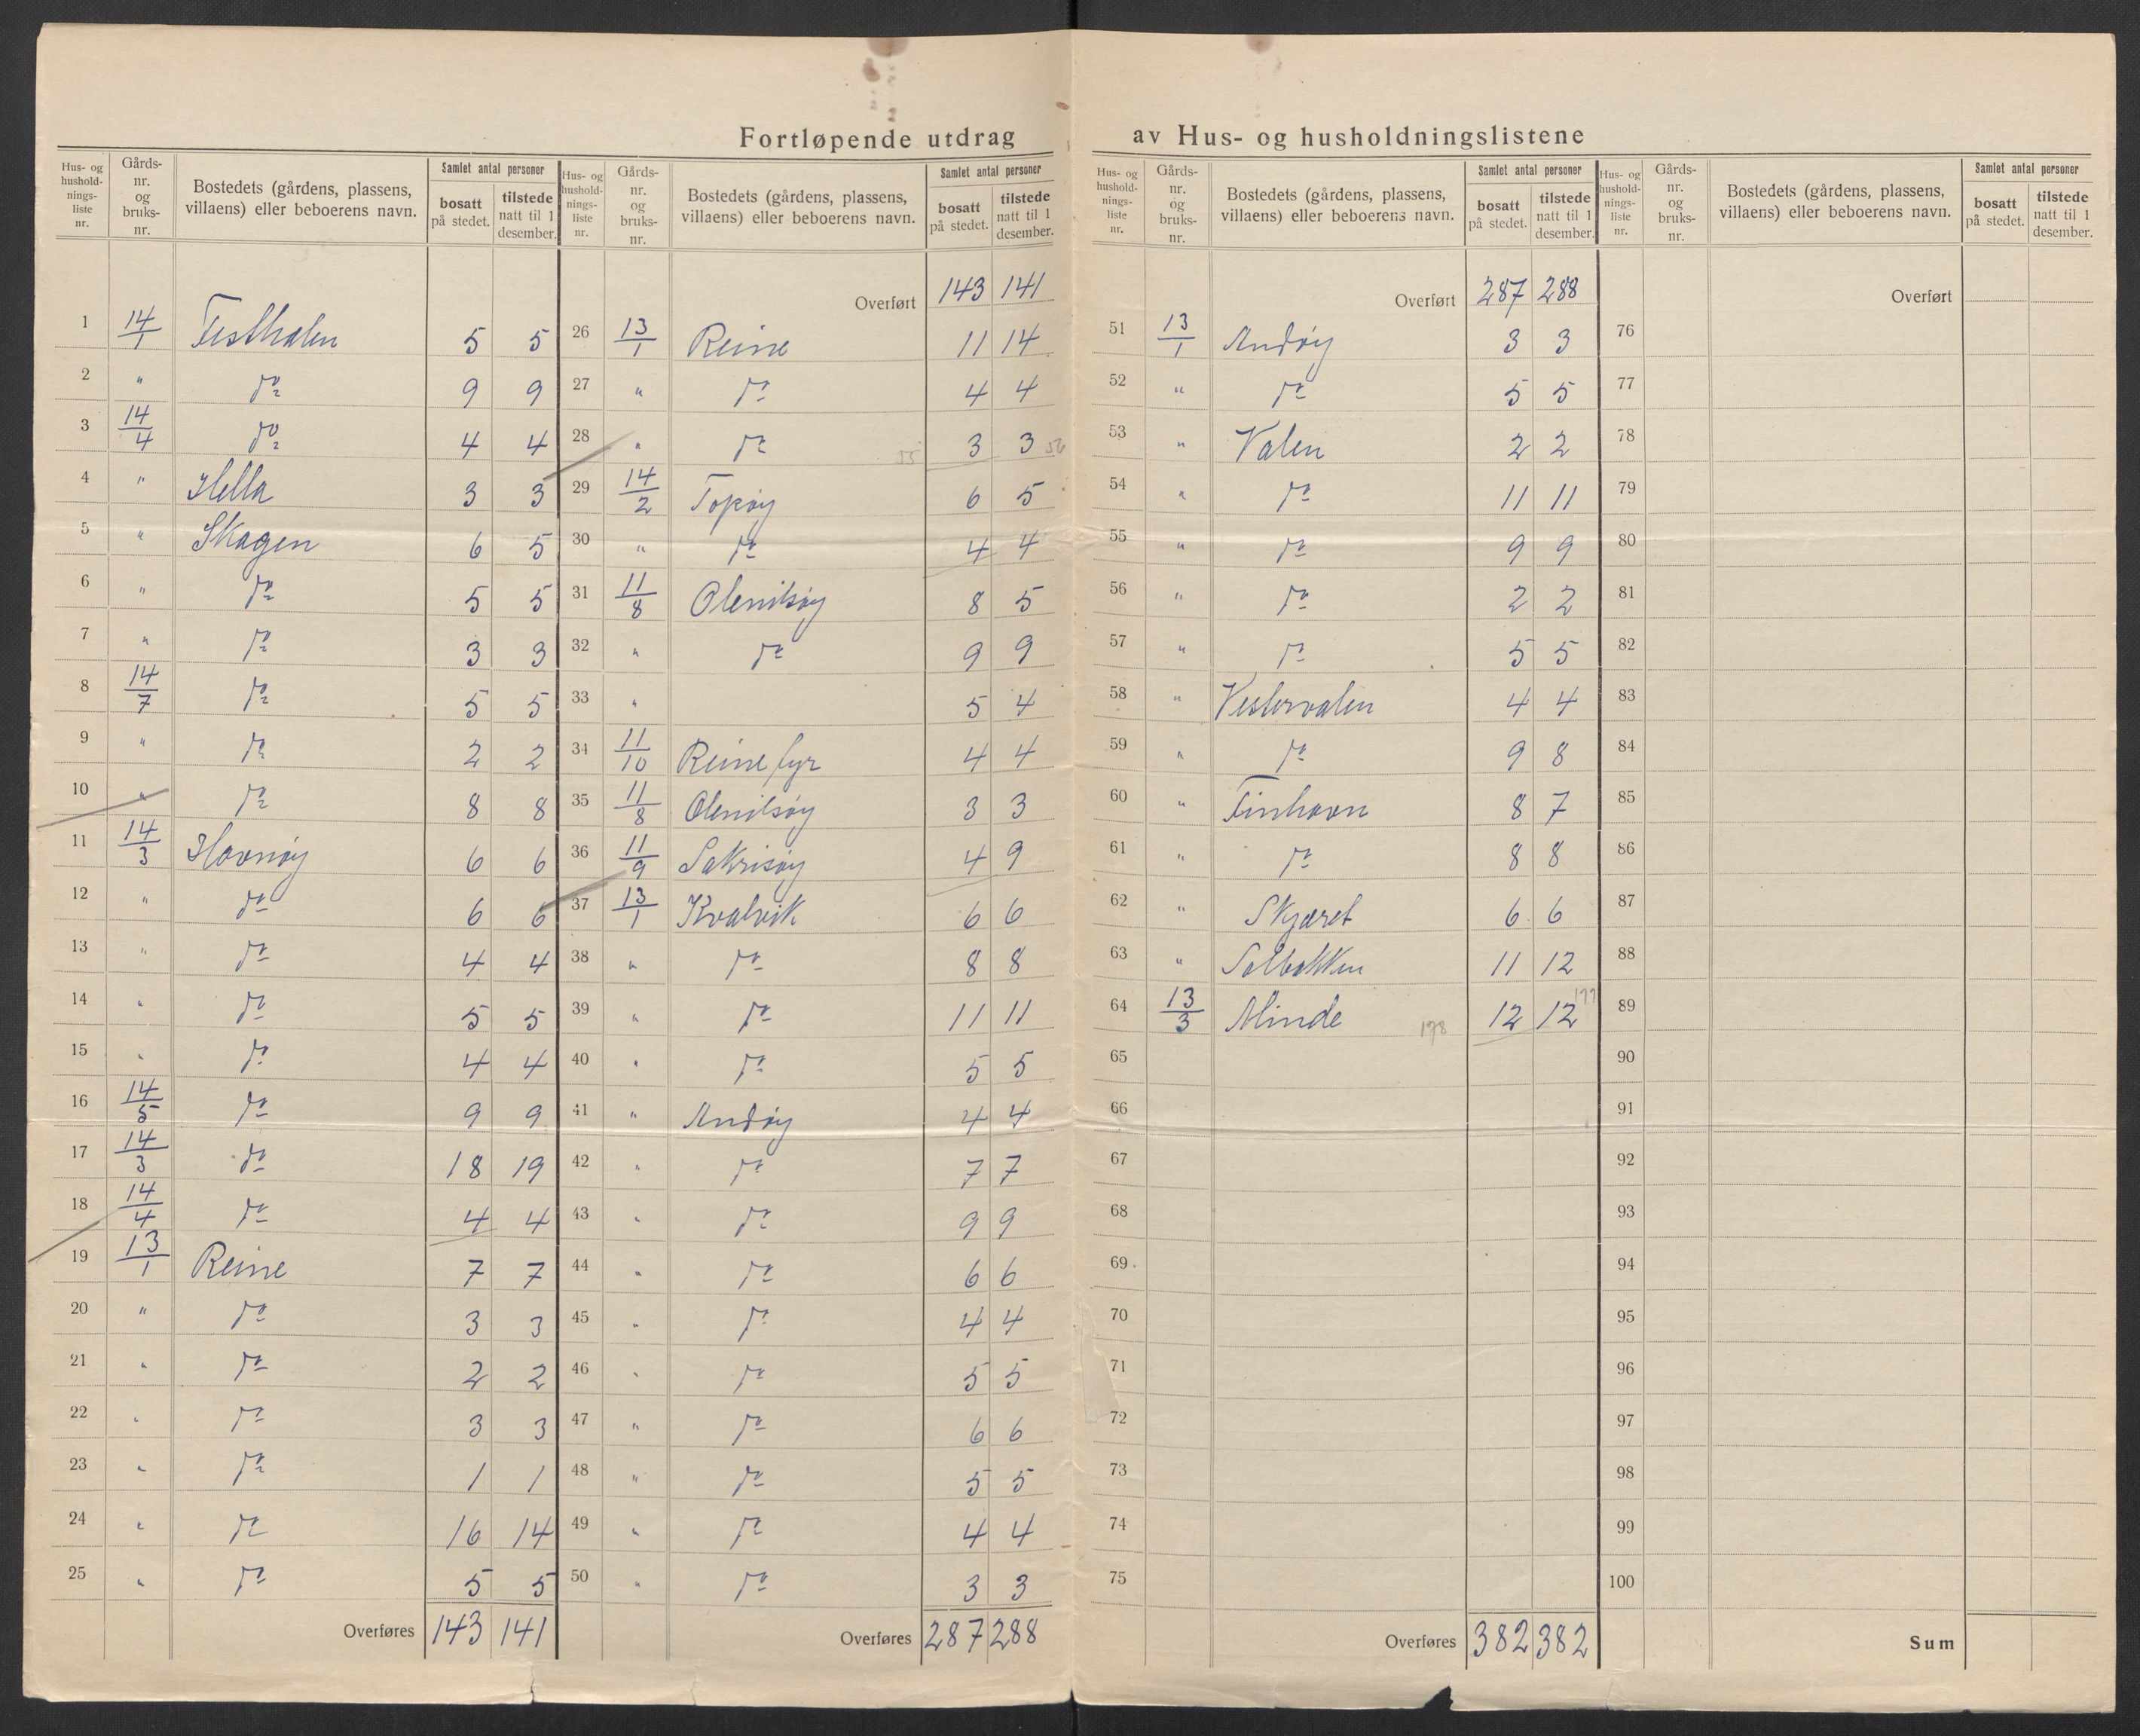 Fortløpende utdrag av Hus- og husholdningslistene
Hus- og hushold-nings-liste nr. | Gårds-nr. og bruks-nr. | Bostedets (gårdens, plassens, villaens) eller beboerens navn. | Samlet antal personer | bosatt på stedet. | tilstede natt til 1 desember.
1 14/1 Festhælen 5 5
2 " do 9 9
3 14/4 do 4 4
4 " Hella 3 3
5 " Skagen 6 5
6 " do 5 5
7 " do 3 3
8 14/7 do 5 5
9 " do 2 2
10 " do 8 8
11 14/3 Havnøy 6 6
12 " do 6 6
13 " do 4 4
14 " do 5 5
15 " do 4 4
16 14/5 do 9 9
17 14/3 do 18 19
18 14/4 do 4 4
19 13/1 Reine 7 7
20 " do 3 3
21 " do 2 2
22 " do 3 3
23 " do 1 1
24 " do 16 14
25 " do 5 5
Overføres 143 141
Hus- og hushold-nings-liste nr. | Gårds-nr. og bruks-nr. | Bostedets (gårdens, plassens, villaens) eller beboerens navn. | Samlet antal personer | bosatt på stedet. | tilstede natt til 1 desember.
Overført 143 141
26 13/1 Reine 11 14
27 " do 4 4
28 " do 55 3 3 56
29 14/2 Topøy 6 5
30 " do 4 4
31 11/8 Olenilsøy 8 5
32 " do 9 9
33 " 5 4
34 11/10 Reine fyr 4 4
35 11/8 Olenilsøy 3 3
36 11/9 Sakrisøy 4 9
37 13/1 Kvalvik 6 6
38 " do 8 8
39 " do 11 11
40 " do 5 5
41 " Andøy 4 4
42 " do 7 7
43 " do 9 9
44 " do 6 6
45 " do 4 4
46 " do 5 5
47 " do 6 6
48 " do 5 5
49 " do 4 4
50 " do 3 3
Overføres 287 288
Hus- og hushold-nings-liste nr. | Gårds-nr. og bruks-nr. | Bostedets (gårdens, plassens, villaens) eller beboerens navn. | Samlet antal personer | bosatt på stedet. | tilstede natt til 1 desember.
Overført 287 288
51 13/1 Andøy 3 3
52 " do 5 5
53 " Valen 2 2
54 " do 11 11
55 " do 9 9
56 " do 2 2
57 " do 5 5
58 " Vestervalen 4 4
59 " do 9 8
60 " Finhavn 8 7
61 " do 8 8
62 " Skjæret 6 6
63 " Solbakken 11 12
64 13/3 Minde 178 12 12 177
65
66
67
68
69
70
71
72
73
74
75
Overføres 382 382
Hus- og hushold-nings-liste nr. | Gårds-nr. og bruks-nr. | Bostedets (gårdens, plassens, villaens) eller beboerens navn. | Samlet antal personer | bosatt på stedet. | tilstede natt til 1 desember.
Overført
76
77
78
79
80
81
82
83
84
85
86
87
88
89
90
91
92
93
94
95
96
97
98
99
100
Sum